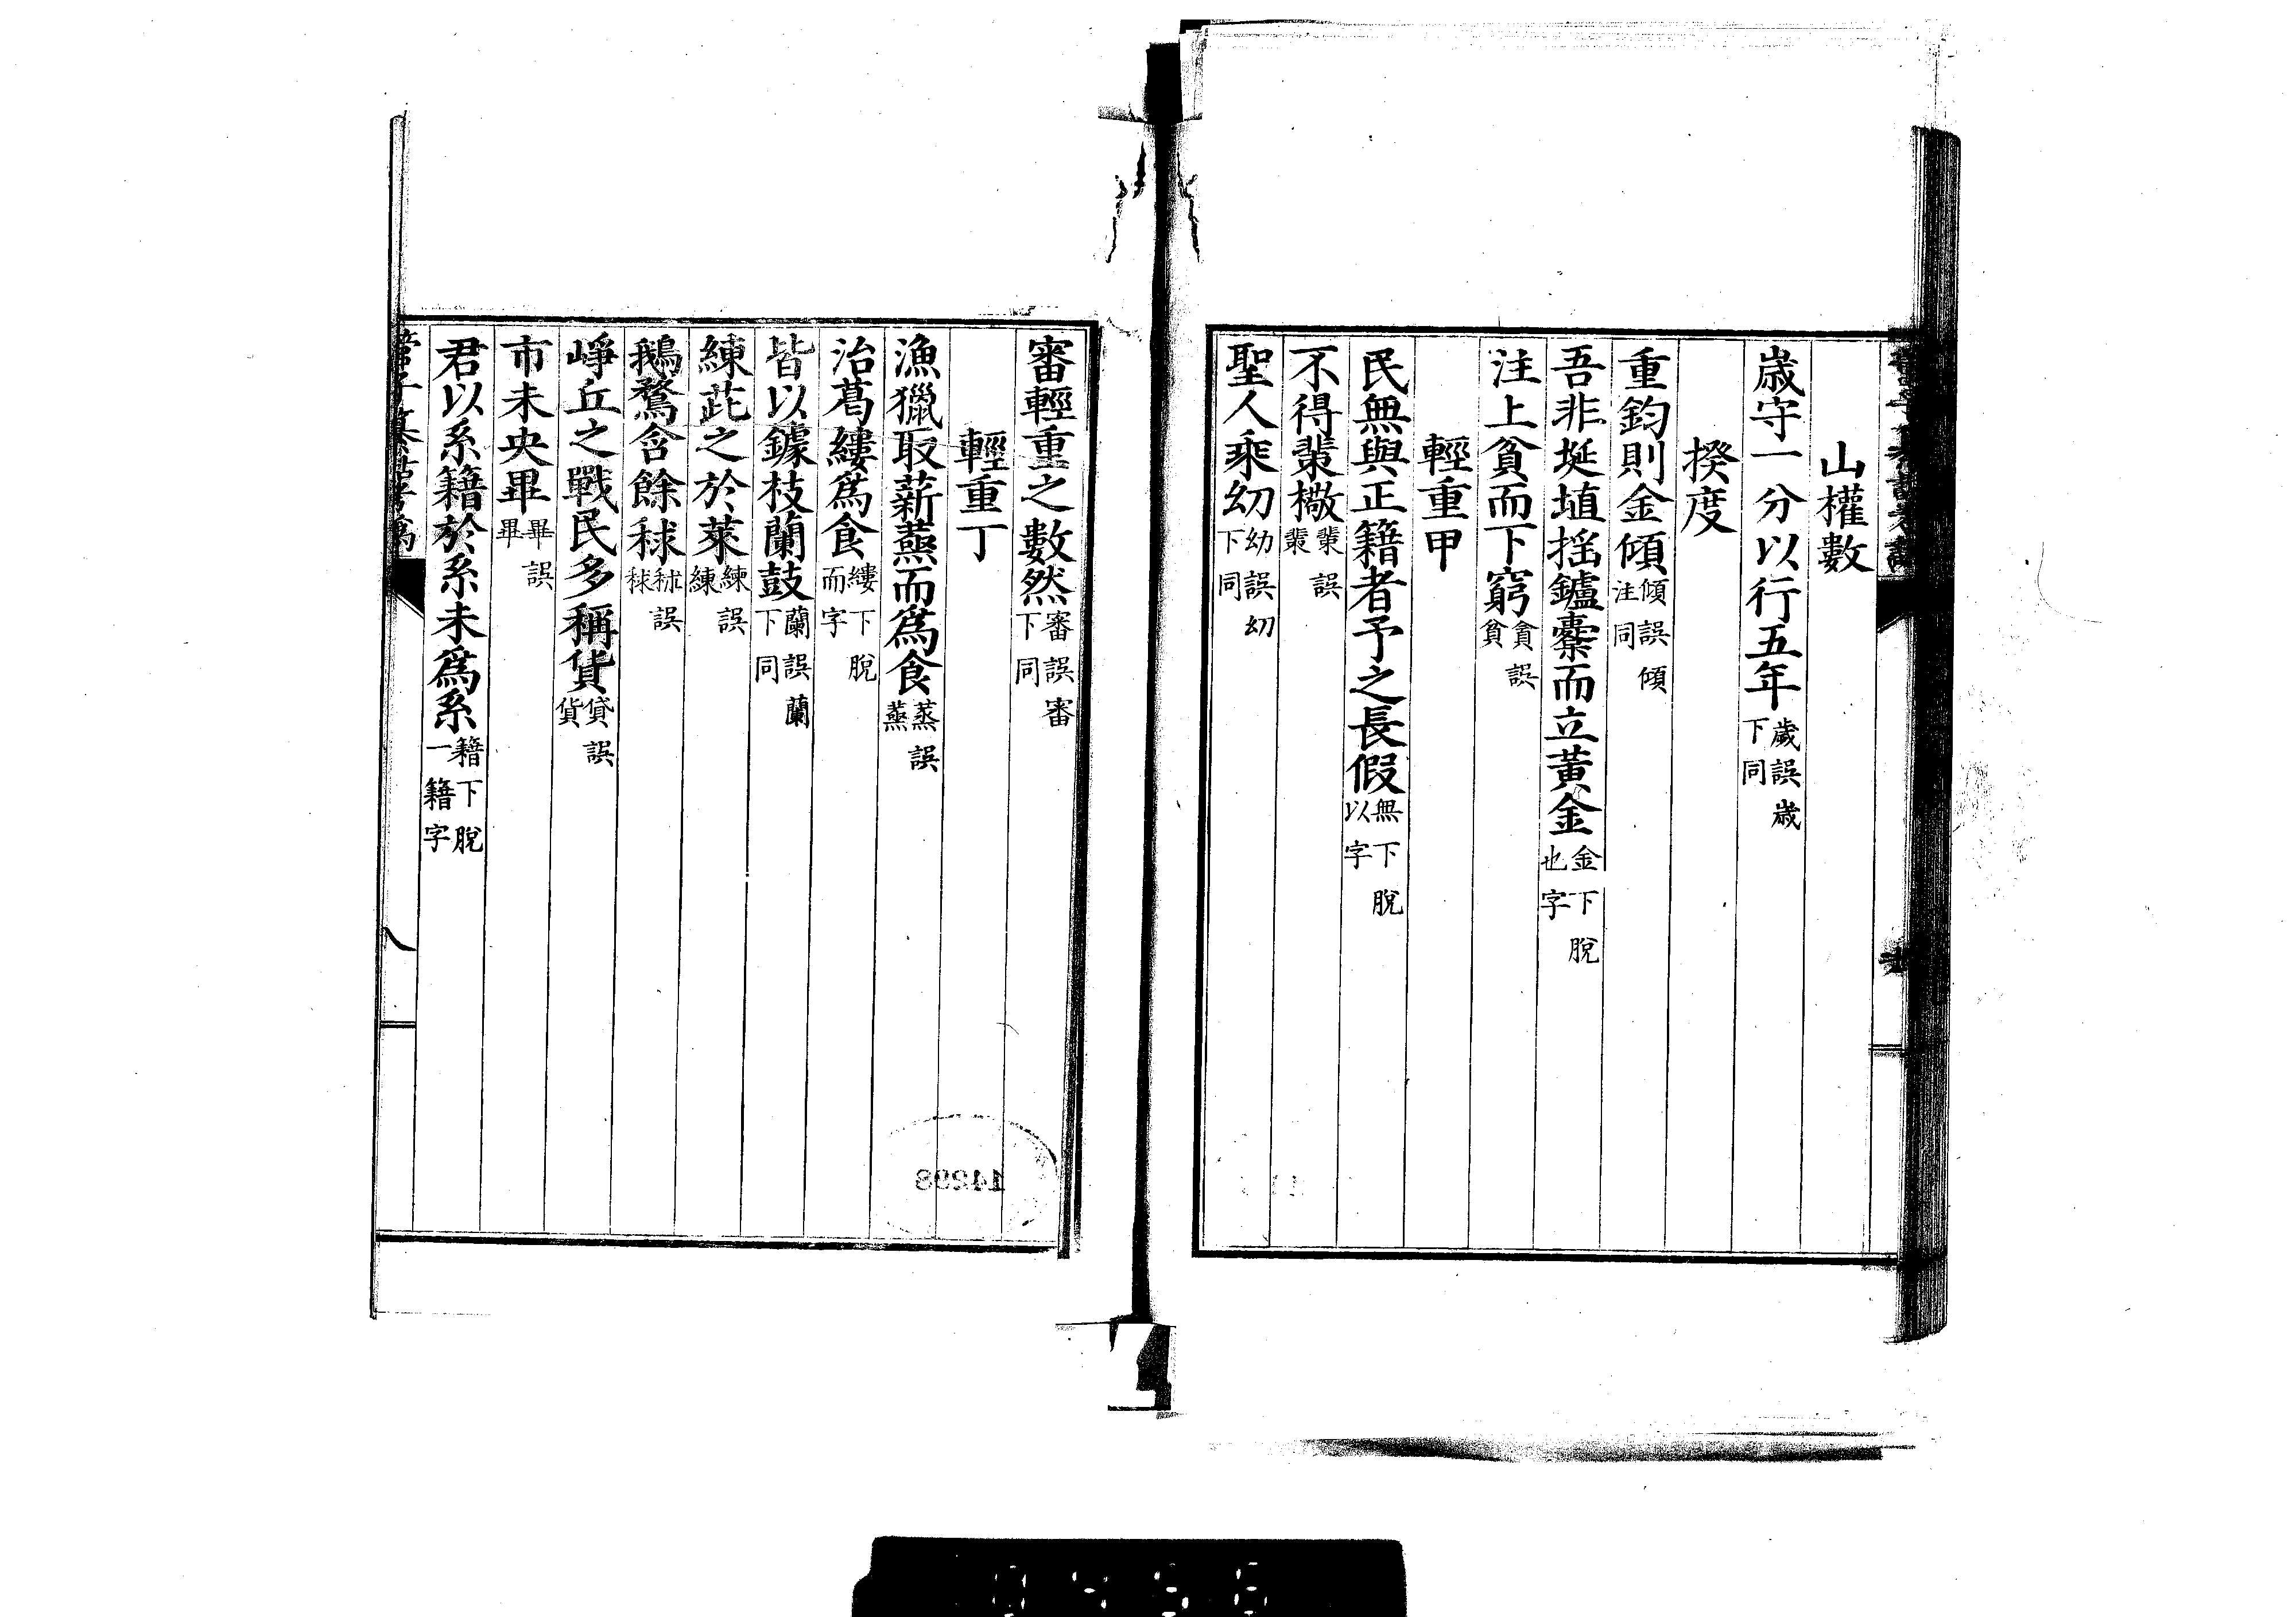 山權數
歳守一分以行五年歲誤歳下同
揆度
重鈞則金傾傾誤傾注同
吾非埏埴揺鑪橐而立黃金金下脫也字
注上貧而下窮貪誤貧
輕重甲
民無與正籍者予之長假無下脫以字
不得棐檄棐誤
聖人乘幼幼誤㓜下同
審輕重之數然審誤審下同
輕重丁
漁獵取薪蒸而爲食蒸誤
治葛縷爲食縷下脫而字
皆以鐻枝蘭鼓蘭誤蘭下同
練茈之於萊練誤練
鵝鶩含餘秣秣誤
崢丘之戰民多稱貨貸誤貨
市未央畢畢誤畢
君以系籍於系未爲系籍下脫一籍字
八
14298